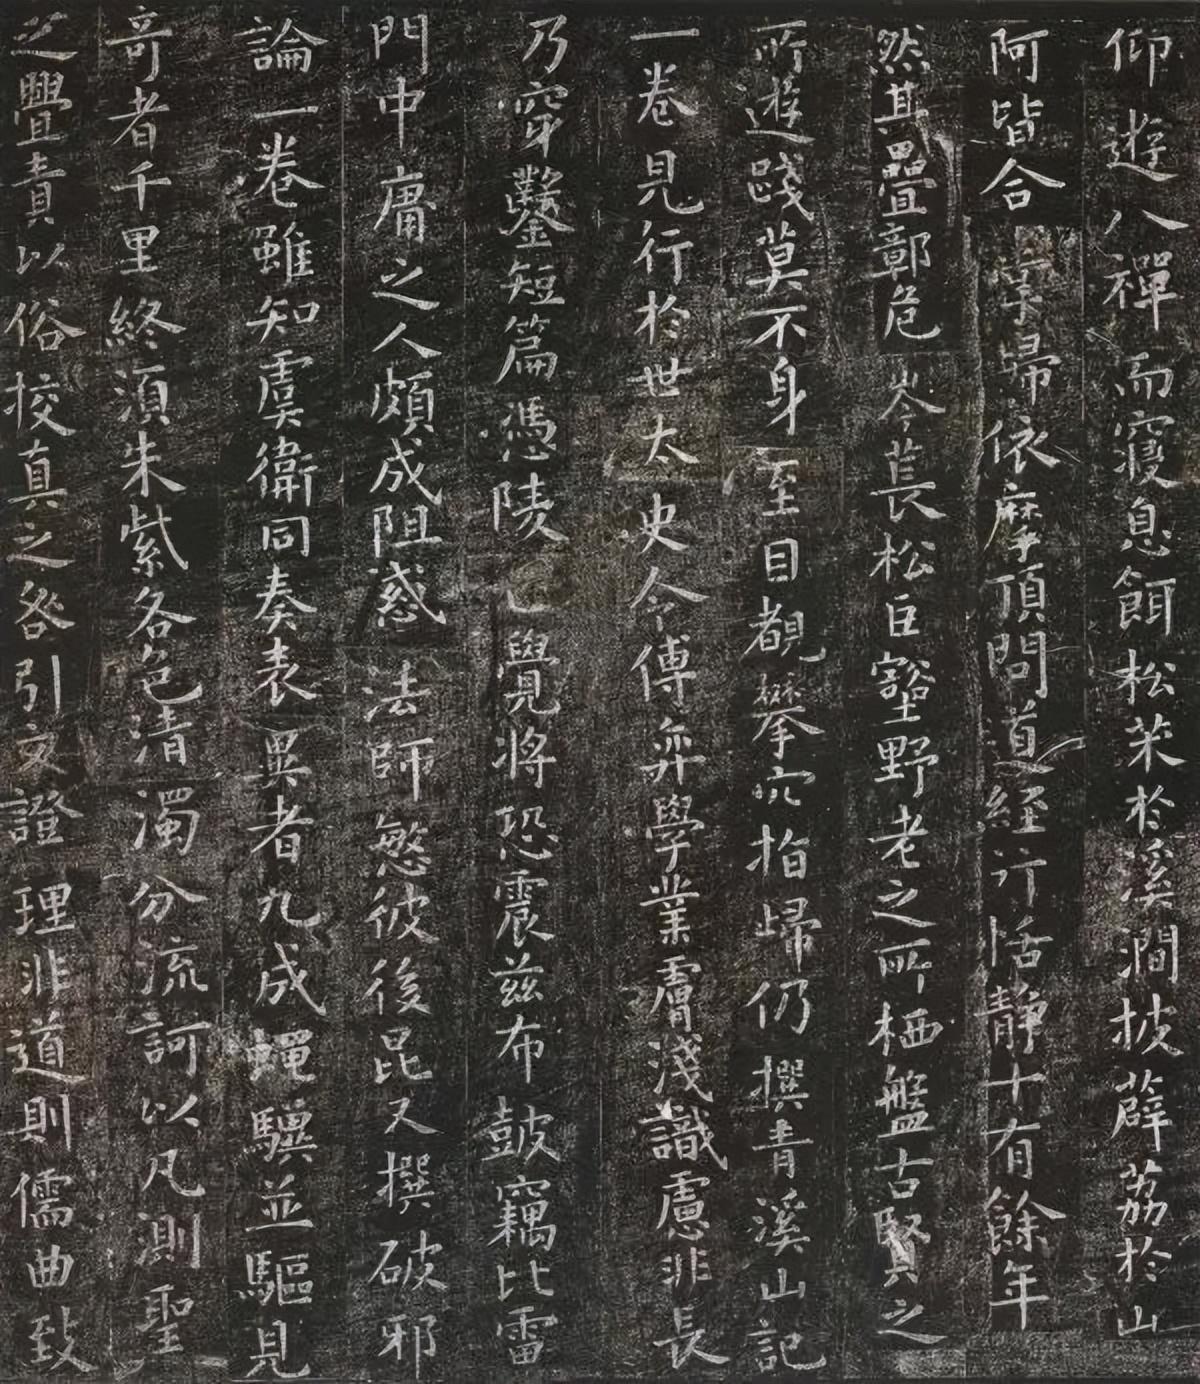 仰遊八禪而寢息餌松茱於溪澗披薜荔於山
阿皆合掌歸依摩頂問道經行恬靜十有餘年
然其疊鄣危岑萇松巨壑野老之所栖盤古賢之
所遊踐莫不身至目覩攀穴指歸仍撰青溪山記
一卷見行於世太史令傅弈學業膚淺識慮非長
乃穿鑿短篇憑陵正覺將恐震茲布鼓竊比雷
門中庸之人頗成阻惑法師愍彼後昆又撰破邪
論一卷雖知虞衛同奏表異者九成蠅驥並驅見
奇者千里終須朱紫各色清濁分流訶以凡測聖
之舋責以俗挍真之咎引文證理非道則儒曲致